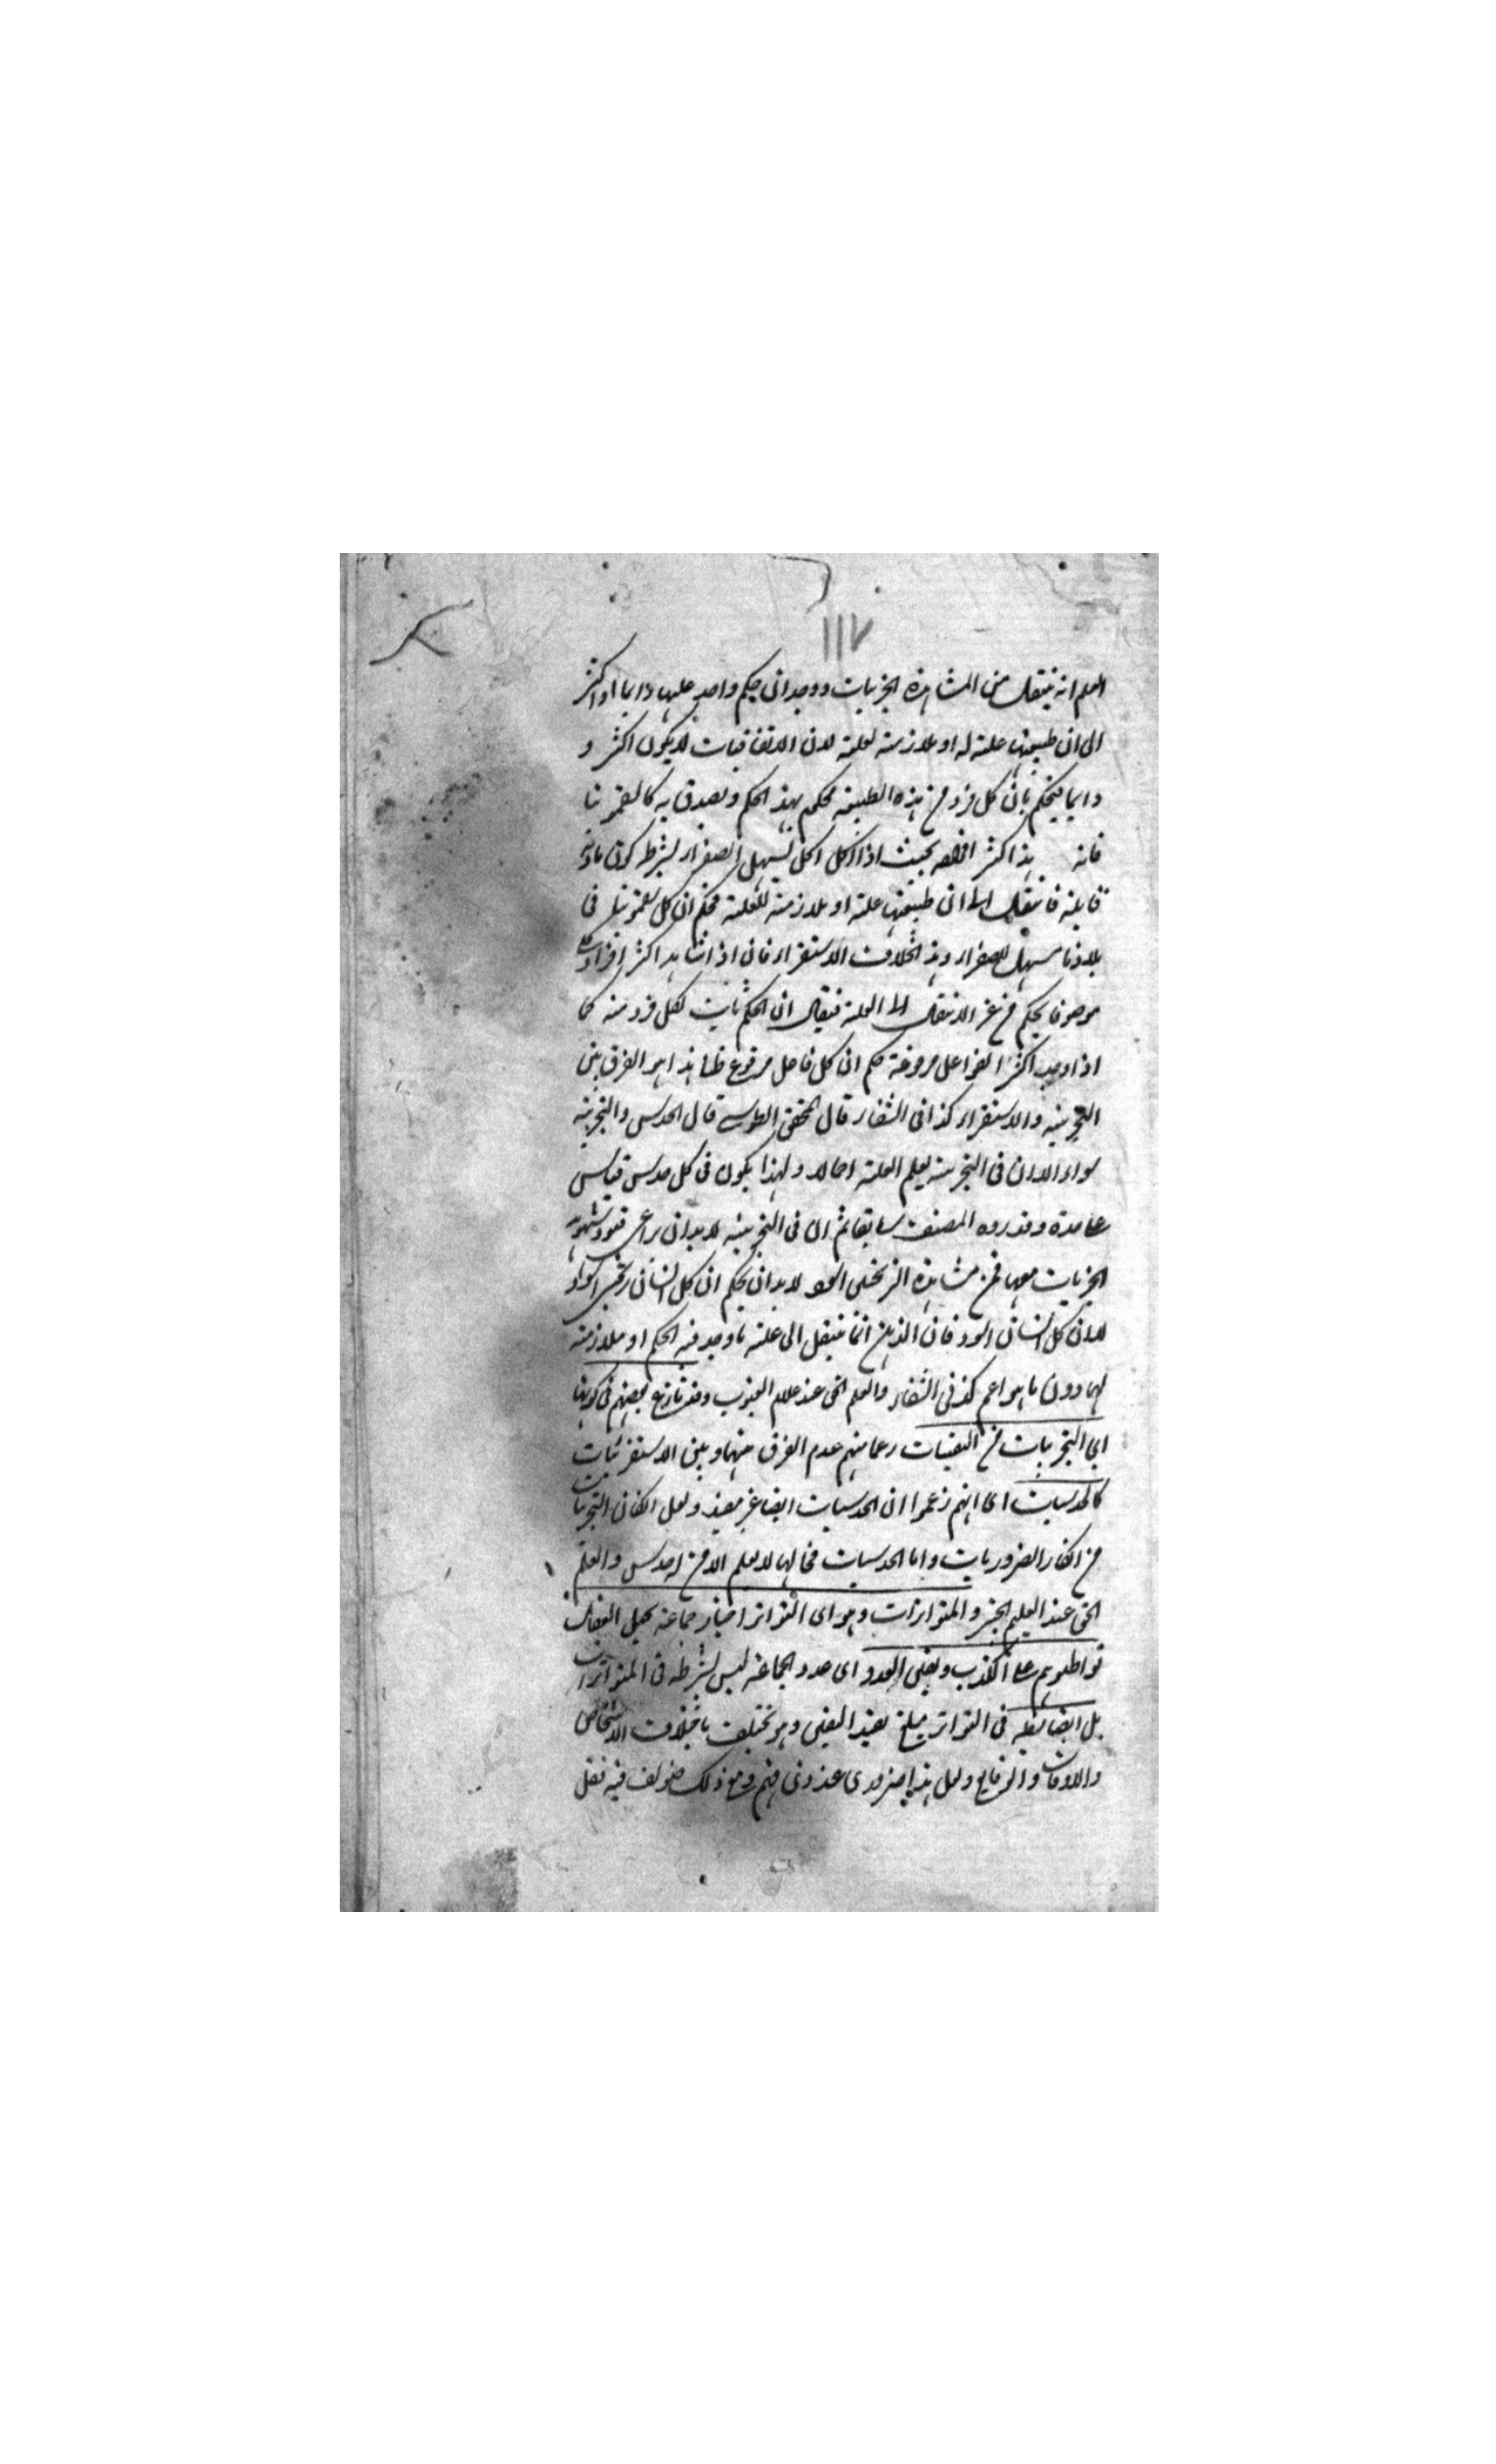 ١١٧
العلم انه ينتقل من المشاهدة الجزئيات ووجدان حكم واحد عليها دايما او اكثر
الى ان طبيعتها علة له او ملازمة لعلته لان الاتفاقيات لا يكون اكثر و
دايما فيحكم بان كل فرد من هذه الطبيعة محكوم بهذا الحكم ويصدق به كالسقمونيا
فانه هذا اكثر بحيث اذا اكل يسهل الصفراء بشرط كون مادته
قابلة فانتقل الى ان طبيعتها علة او ملازمة للعلة فحكم ان كل سقمونيا في
بلادنا مسهل للصفراء وهذا بخلاف الاستقراء فان اذا شاهد اكثر افراد كلي
موصوفا بحكم من غير الانتقال الى العلة فيقال ان الحكم ثابت لكل فرد منه كما
اذا وجد اكثر الفواعل مرفوعة حكم ان كل فاعل مرفوع ظنا هذا هو الفرق بين
التجربية والاستقراء كذا في الشفاء قال المحقق الطوسي قال الحدس والتجربة
سواء الا ان في التجربية يعلم العلة اجمالا ولهذا يكون في كل حدس قياس
عاحدة وقد رده المصنف سابقا ثم ان في التجربية لا بد ان يراعى قيود شهود
الجزئيات معها فمن مشاهدة الزنجي لا بد ان يحكم ان كل انسان زنجي اسود
لا ان كل انسان اسود فان الذهن انما ينتقل الى علة ما وجد فيه الحكم او ملازمة
لها دون ما هو اعم كذا في الشفاء والعلم الحق عند علام الغيوب وقد نازع بعضهم في كونها
اي التجربيات من اليقينيات زعما منهم عدم الفرق بينها وبين الاستقرئيات
كالحدسيات اي انهم زعموا ان الحدسيات ايضا غير مفيد ولعل انكار التجربيات
من انكار الضروريات واما الحدسيات فحالها لا يعلم الا من له حدس والعلم
الحق عند العليم الخبير والمتواترات وهو اى التواتر اخبار جماعة يحيل العقل
تواطئوهم على الكذب وتعين العدد اى عدد الجماعة ليس بشرط في المتواترات
بل الضابطة في التواتر مبلغ يفيد اليقين وهو تختلف باختلاف الاشخاص
والاوقات والوقايع ولعل هذا ضروري عند ذي فهم ومع ذلك خولف فيه فقل